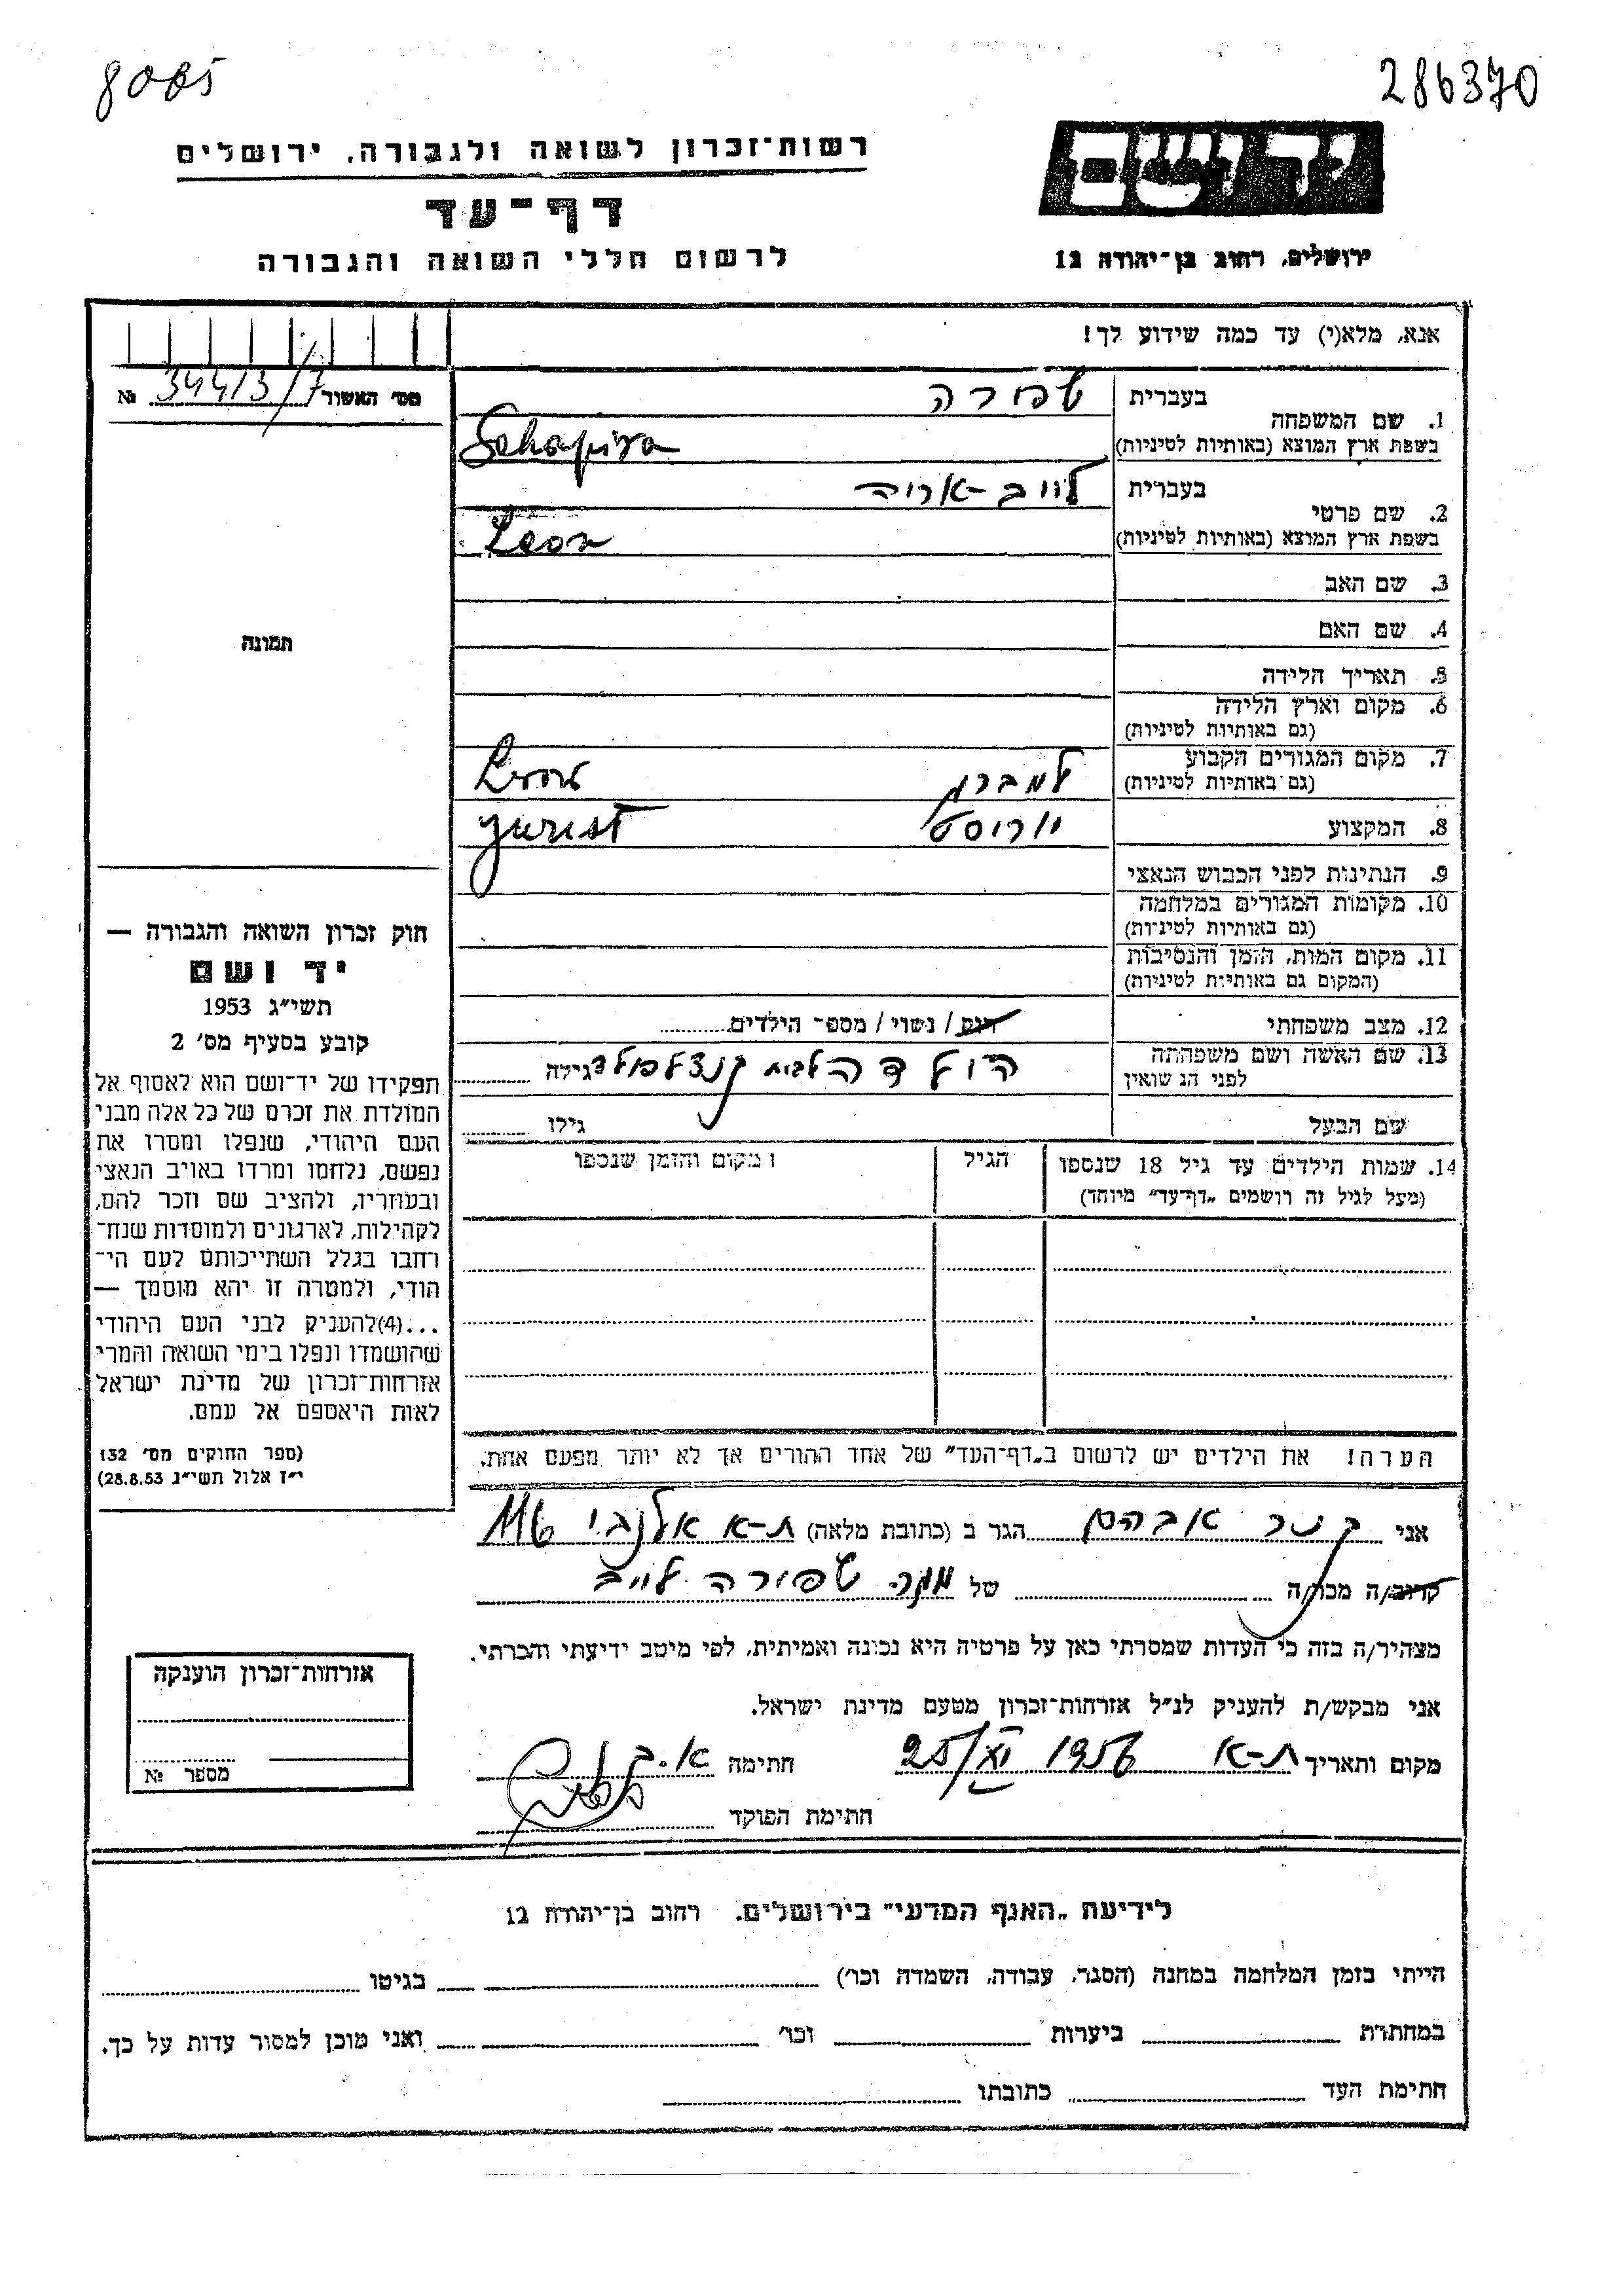 8065
286370
רשות־זכרון לשואה ולגבורה, ירושלים
יד ושם
דף־עד
לרשום חללי השואה והגבורה
ירושלים, רחוב בן־יהודה 12
אנא, מלא(י) עד כמה שידוע לך!
מס׳ האשור 34413/7 №
1. שם המשפחה
בעברית שפירה
בשפת ארץ המוצא (באותיות לטיניות) Schapira
2. שם פרטי
בעברית לייב-אריה
בשפת ארץ המוצא (באותיות לטיניות) Leon
3. שם האב
4. שם האם
תמונה
5. תאריך הלידה
6. מקום וארץ הלידה
(גם באותיות לטיניות)
7. מקום המגורים הקבוע למברג Lwow
(גם באותיות לטיניות)
8. המקצוע יוריסט jurist
9. הנתינות לפני הכבוש הנאצי
10. מקומות המגורים במלחמה
(גם באותיות לטיניות)
11. מקום המות, הזמן והנסיבות
(המקום גם באותיות לטיניות)
12. מצב משפחתי רוק / נשוי / מספר הילדים
13. שם האשה ושם משפחתה
לפני הנשואין
הולדה לבית גילה
שם הבעל גילו
14. שמות הילדים עד גיל 18 שנספו
(מעל לגיל זה רושמים „דף־עד״ מיוחד)
הגיל
מקום והזמן שנספו
חוק זכרון השואה והגבורה —
יד ושם
תשי״ג 1953
קובע בסעיף מס׳ 2
תפקידו של יד־ושם הוא לאסוף אל
המולדת את זכרם של כל אלה מבני
העם היהודי, שנפלו ומסרו את
נפשם, נלחמו ומרדו באויב הנאצי
ובעוזריו, ולהציב שם וזכר להם,
לקהילות, לארגונים ולמוסדות שנח־
רחבו בגלל השתייכותם לעם הי־
הודי, ולמטרה זו יהא מוסמך —
...(4)להעניק לבני העם היהודי
שהושמדו ונפלו בימי השואה והמרי
אזרחות־זכרון של מדינת ישראל
לאות היאספם אל עמם.
(ספר החוקים מס׳ 132
י״ז אלול תשי״ג 28.8.53)
הערה! את הילדים יש לרשום ב„דף־העד״ של אחד ההורים אך לא יותר מפעם אחת.
אני אברהם הגר ב (כתובת מלאה) ת-א אלנבי 116
קרוב/ה מכר/ה של שפירה לייב
מצהיר/ה בזה כי העדות שמסרתי כאן על פרטיה היא נכונה ואמיתית, לפי מיטב ידיעתי והכרתי.
אני מבקש/ת להעניק לנ״ל אזרחות־זכרון מטעם מדינת ישראל.
מקום ותאריך ת-א 1956 25/XI חתימה
חתימת הפוקד
אזרחות־זכרון הוענקה
מספר №
לידיעת „האגף המדעי״ בירושלים, רחוב בן־יהודה 12
הייתי בזמן המלחמה במחנה (הסגר, עבודה, השמדה וכו׳) בגיטו
במחתרת ביערות וכו׳ ואני מוכן למסור עדות על כך.
חתימת העד כתובתו